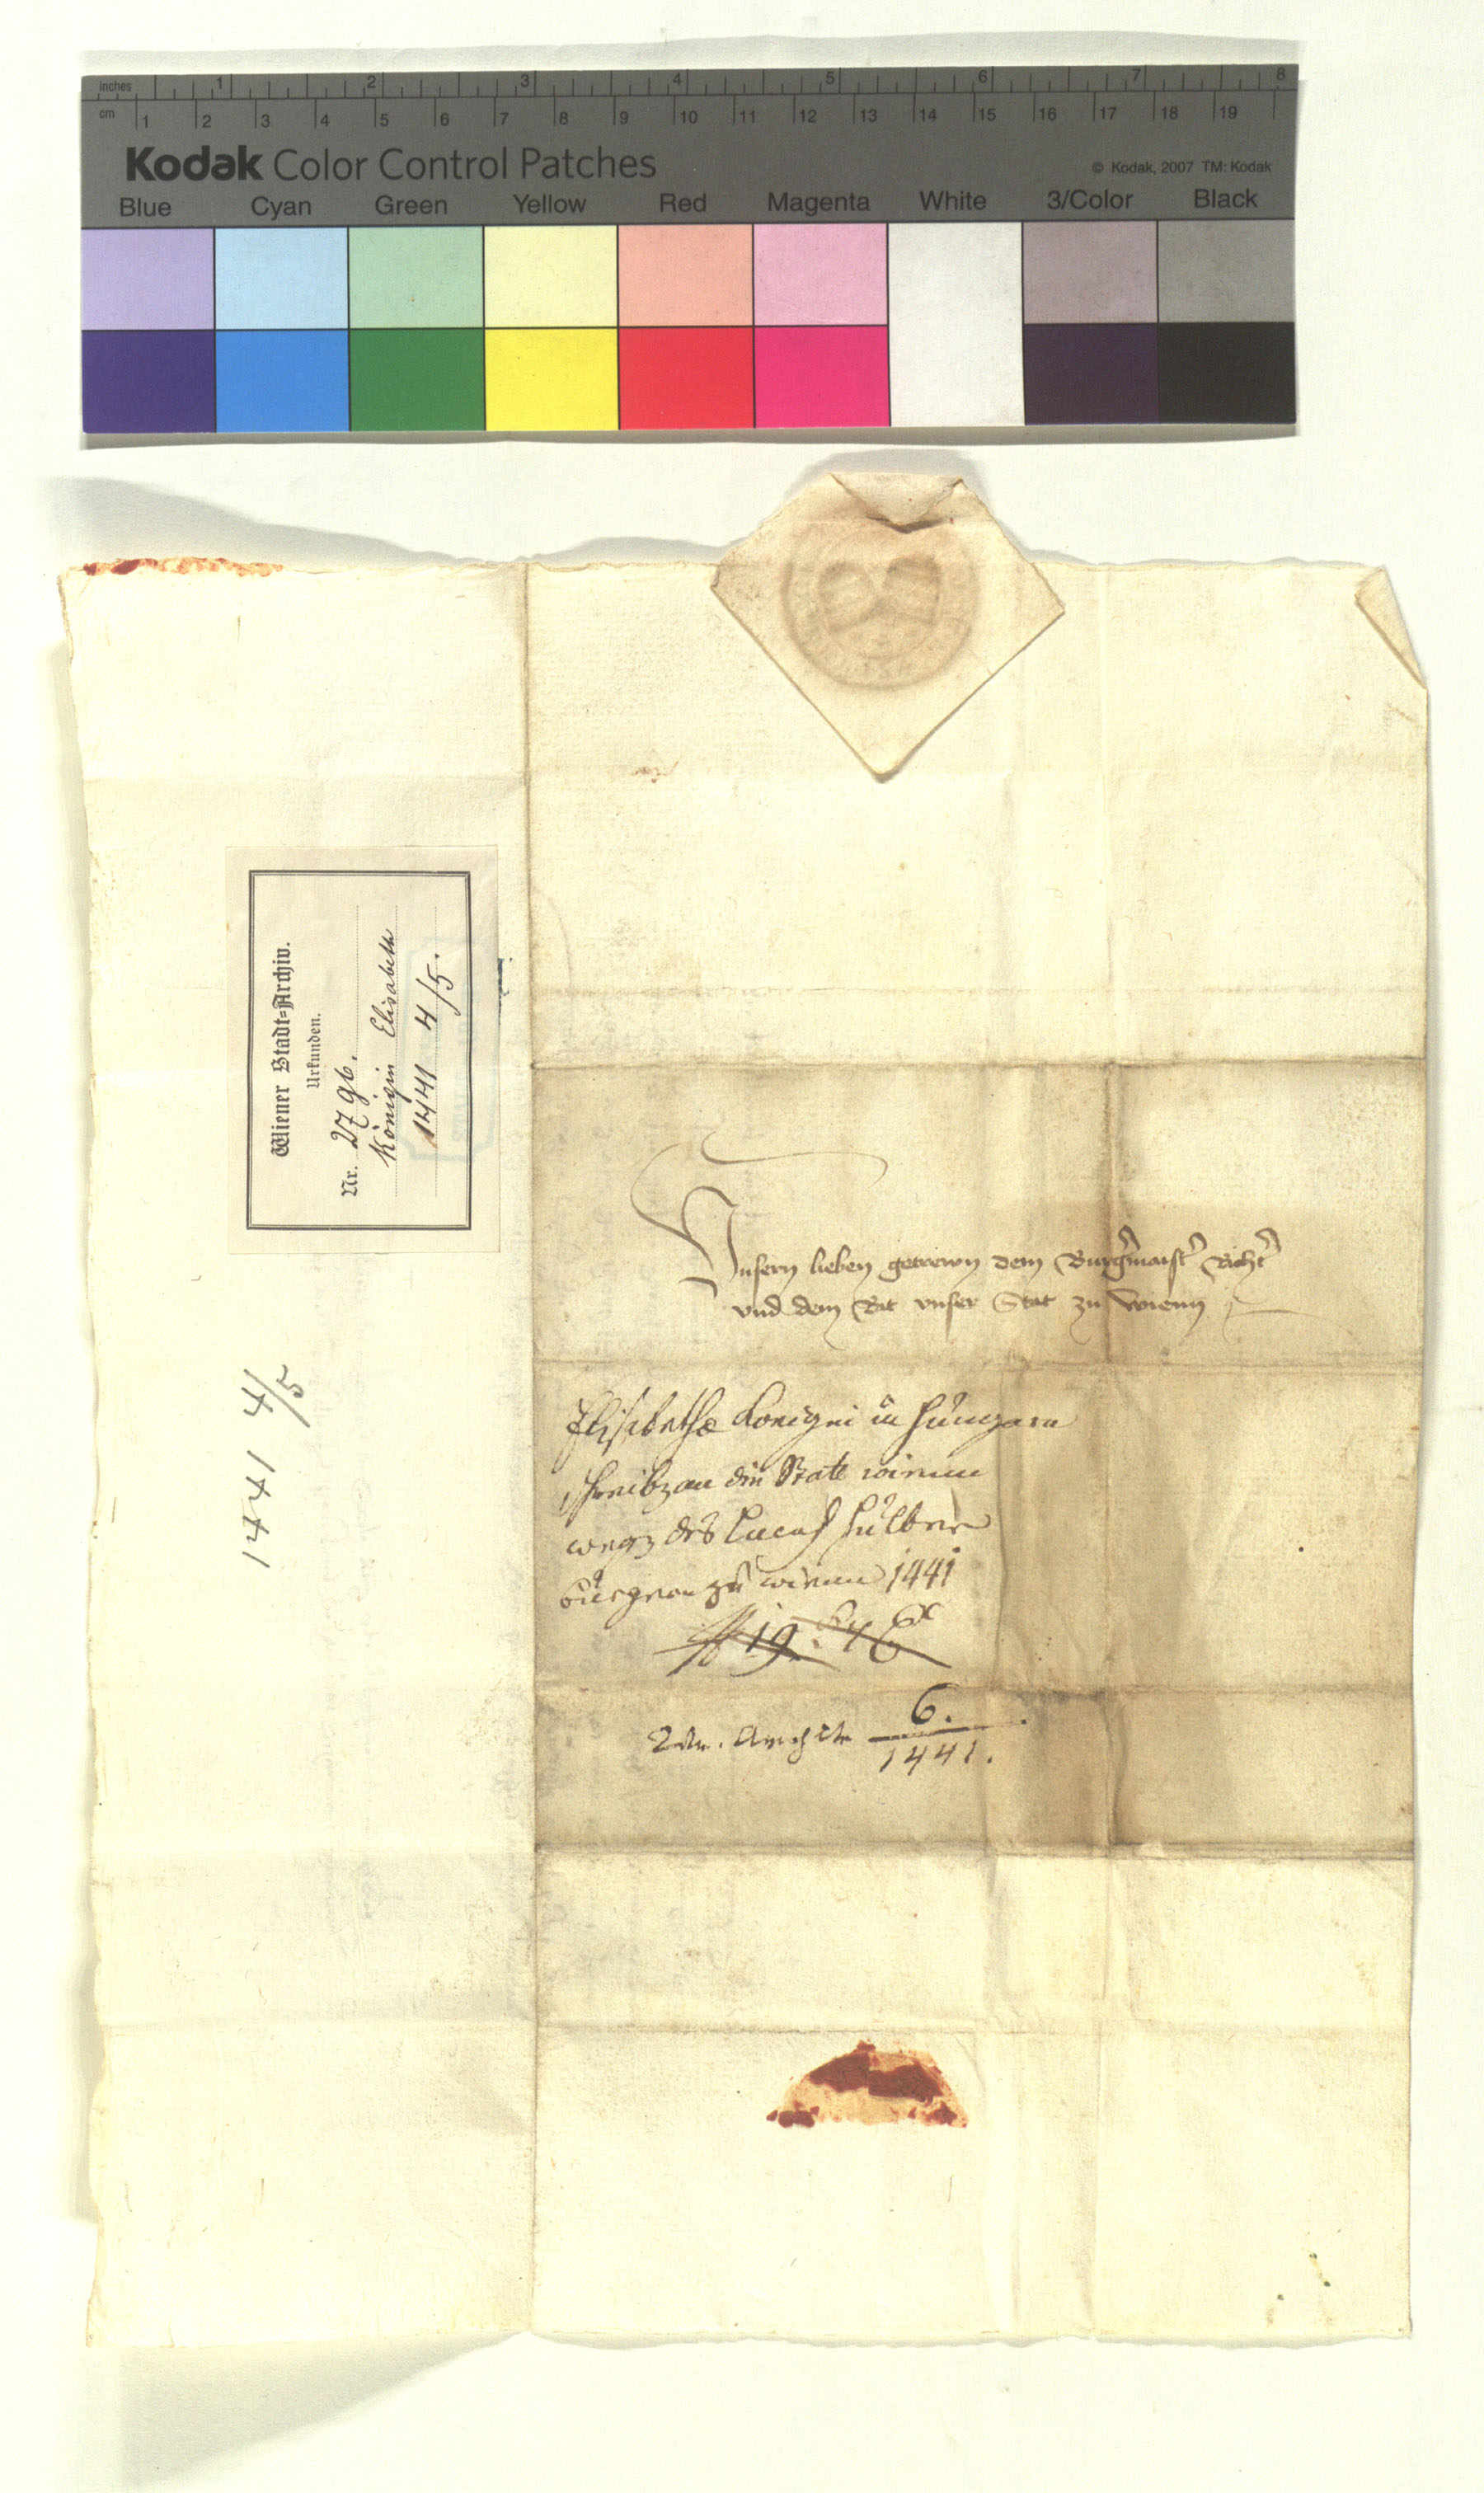 inches 1 2 3 4 5 6 7 8
cm 1 2 3 4 5 6 7 8 9 10 11 12 13 14 15 16 17 18 19
Kodak Color Control Patches
© Kodak, 2007 TM: Kodak
Blue Cyan Green Yellow Red Magenta White 3/Color Black
Wiener Stadt-Archiv.
Urkunden.
Nr. 2796.
Königin Elisabeth
1441 4/5.
1441 4/5
Vnsern lieben getrewn dem Burgermaister Richter
vnd dem Rat vnser Stat zu Wienn
Elisabethæ Königin in Hungarn
schreibz an die State wienn
wegz des Lucas
burgern zu wienn 1441
19.
6.
1441.